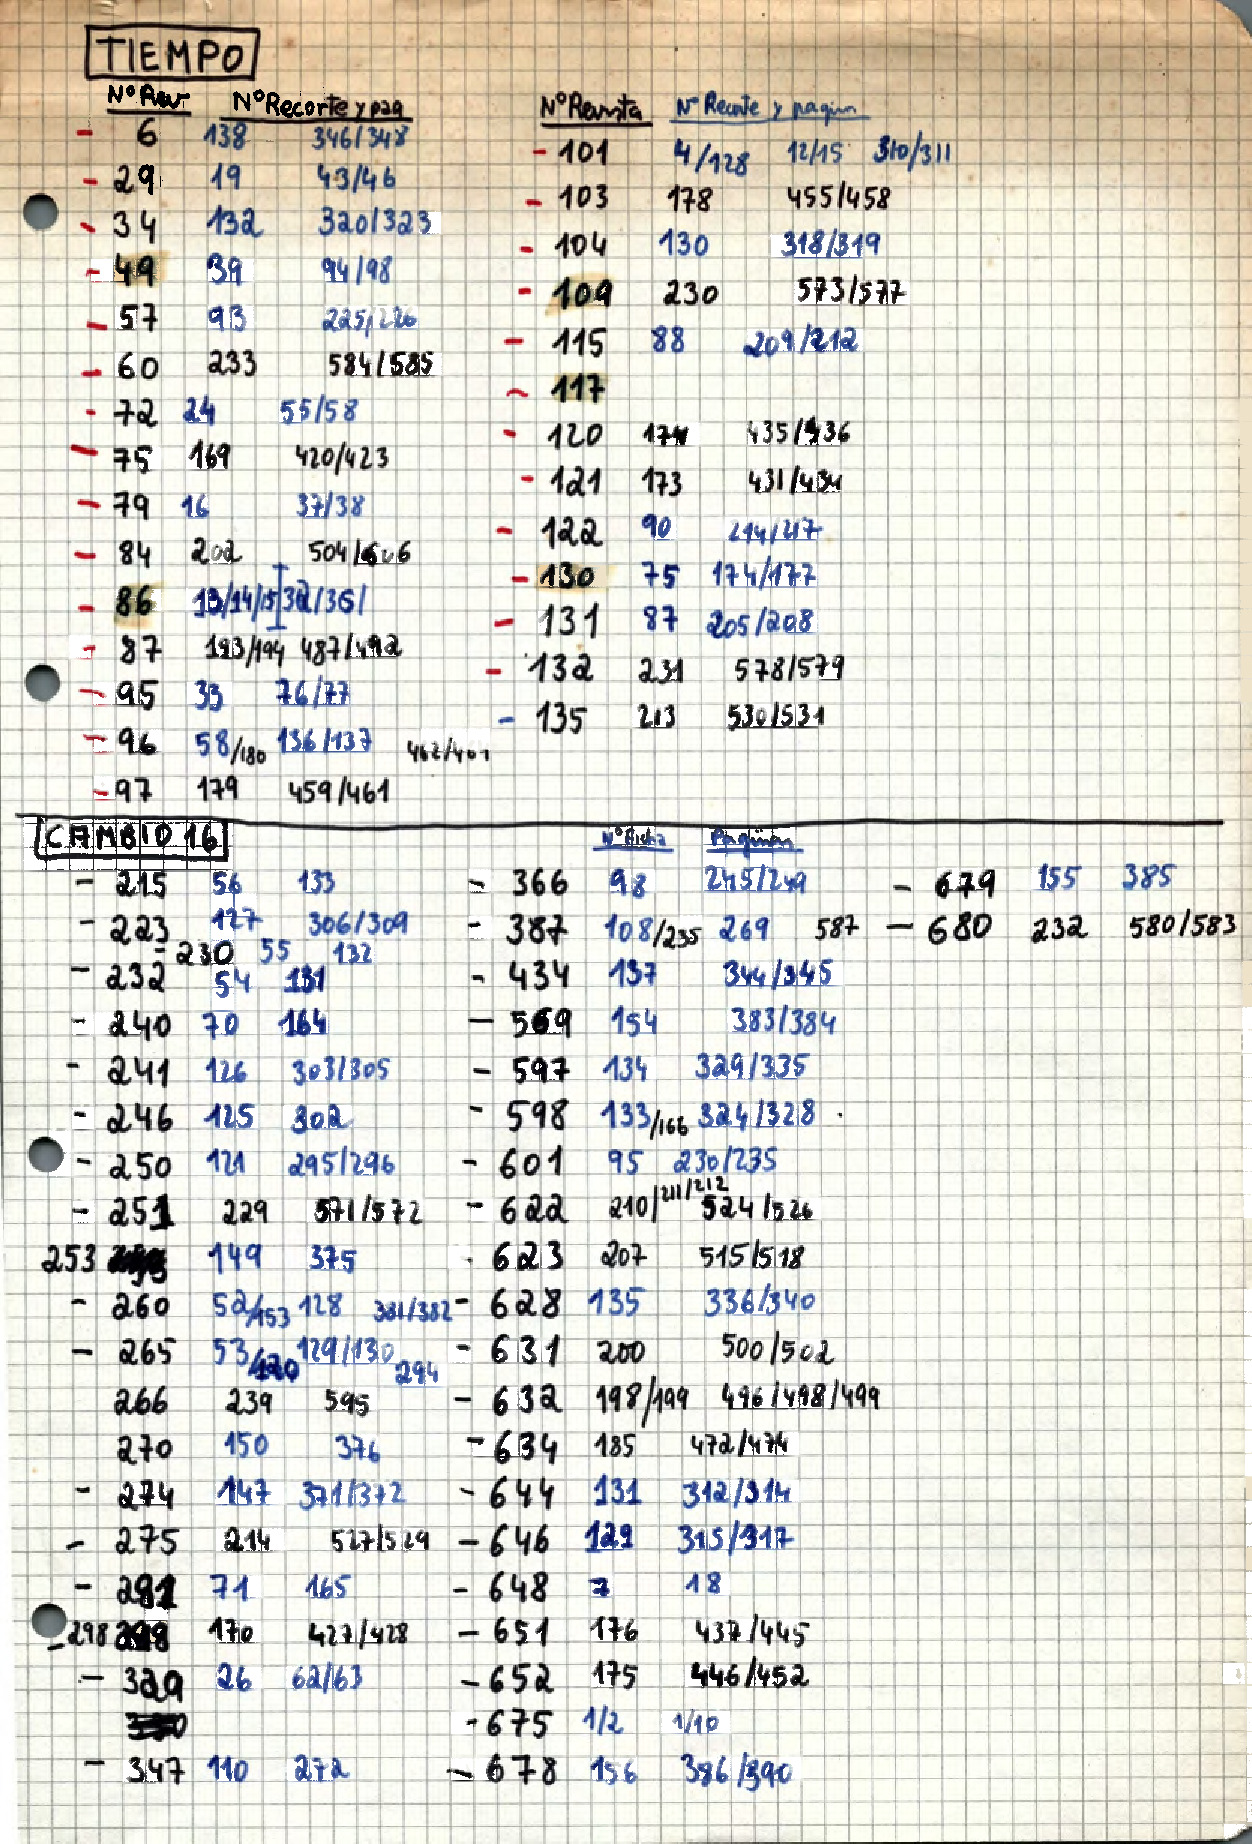 TIEMPO
Nº Rev Nº Recorte y pag
- 6 138 346/348
- 29 19 43/46
- 34 132 320/323
- 49 39 94/98
- 57 93 225/226
- 60 233 584/585
- 72 24 55/58
- 75 169 420/423
- 79 16 37/38
- 84 202 504/506
- 86 13/14/15 32/36/
- 87 193/194 487/492
- 95 33 76/77
- 96 58/180 136/137
- 97 179 459/461
Nº Revista Nº Recorte y pagin
- 101 4/128 12/15 310/311
- 103 178 455/458
- 104 130 318/319
- 109 230 573/577
- 115 88 209/212
- 117
- 120 174 435/436
- 121 173 431/434
- 122 90 214/217
- 130 75 174/177
- 131 87 205/208
- 132 231 578/579
- 135 213 530/531
CAMBIO 16
- 215 56 133
- 223 127 306/309
- 230 55 132
- 232 54 131
- 240 70 164
- 241 126 303/305
- 246 125 302
- 250 121 295/296
- 251 229 571/572
253 149 375
- 260 52/153 128 381/382
- 265 53/120 129/130 294
266 239 595
270 150 376
- 274 147 371/372
- 275 214 527/529
- 281 71 165
- 298 170 427/428
- 329 26 62/63
- 347 110 272
Nº Ficha Paginas
- 366 98 245/249
- 387 108/235 269 587
- 434 137 344/345
- 569 154 383/384
- 597 134 329/335
- 598 133/166 324/328
- 601 95 230/235
- 622 210/211/212 524/526
- 623 207 515/518
- 628 135 336/340
- 631 200 500/502
- 632 198/199 496/498/499
- 634 185 472/474
- 644 131 312/314
- 646 129 315/317
- 648 7 18
- 651 176 437/445
- 652 175 446/452
- 675 1/2 1/10
- 678 156 386/390
- 679 155 385
- 680 232 580/583